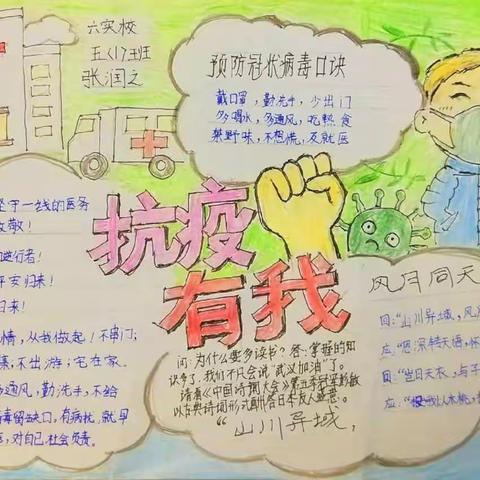 六实校
五(1)班
张润之
预防冠状病毒口诀
戴口罩,勤洗手,少出门
多喝水,多通风,吃熟食
禁野味,不恐慌,及就医
抗疫
有我
坚守一线的医务
致敬!
逆行者!
平安归来!
归来!
情,从我做起!不串门;
集,不出游;宅在家。
通风,勤洗手,不给
毒留缺口,有病状,就早
医,对自己社会负责。
问:为什么要多读书?答:掌握的知
识多了,我们不只会说"武汉加油"了。
请看《中国诗词大会》第五季冠军彭敏
以古典诗词形式酬答日本友人慈悲。
"山川异域,
风月同天
日:"山川异域,风
应:"恩深转无语,怀
日:"岂曰无衣,与子
应:"投我以木桃,